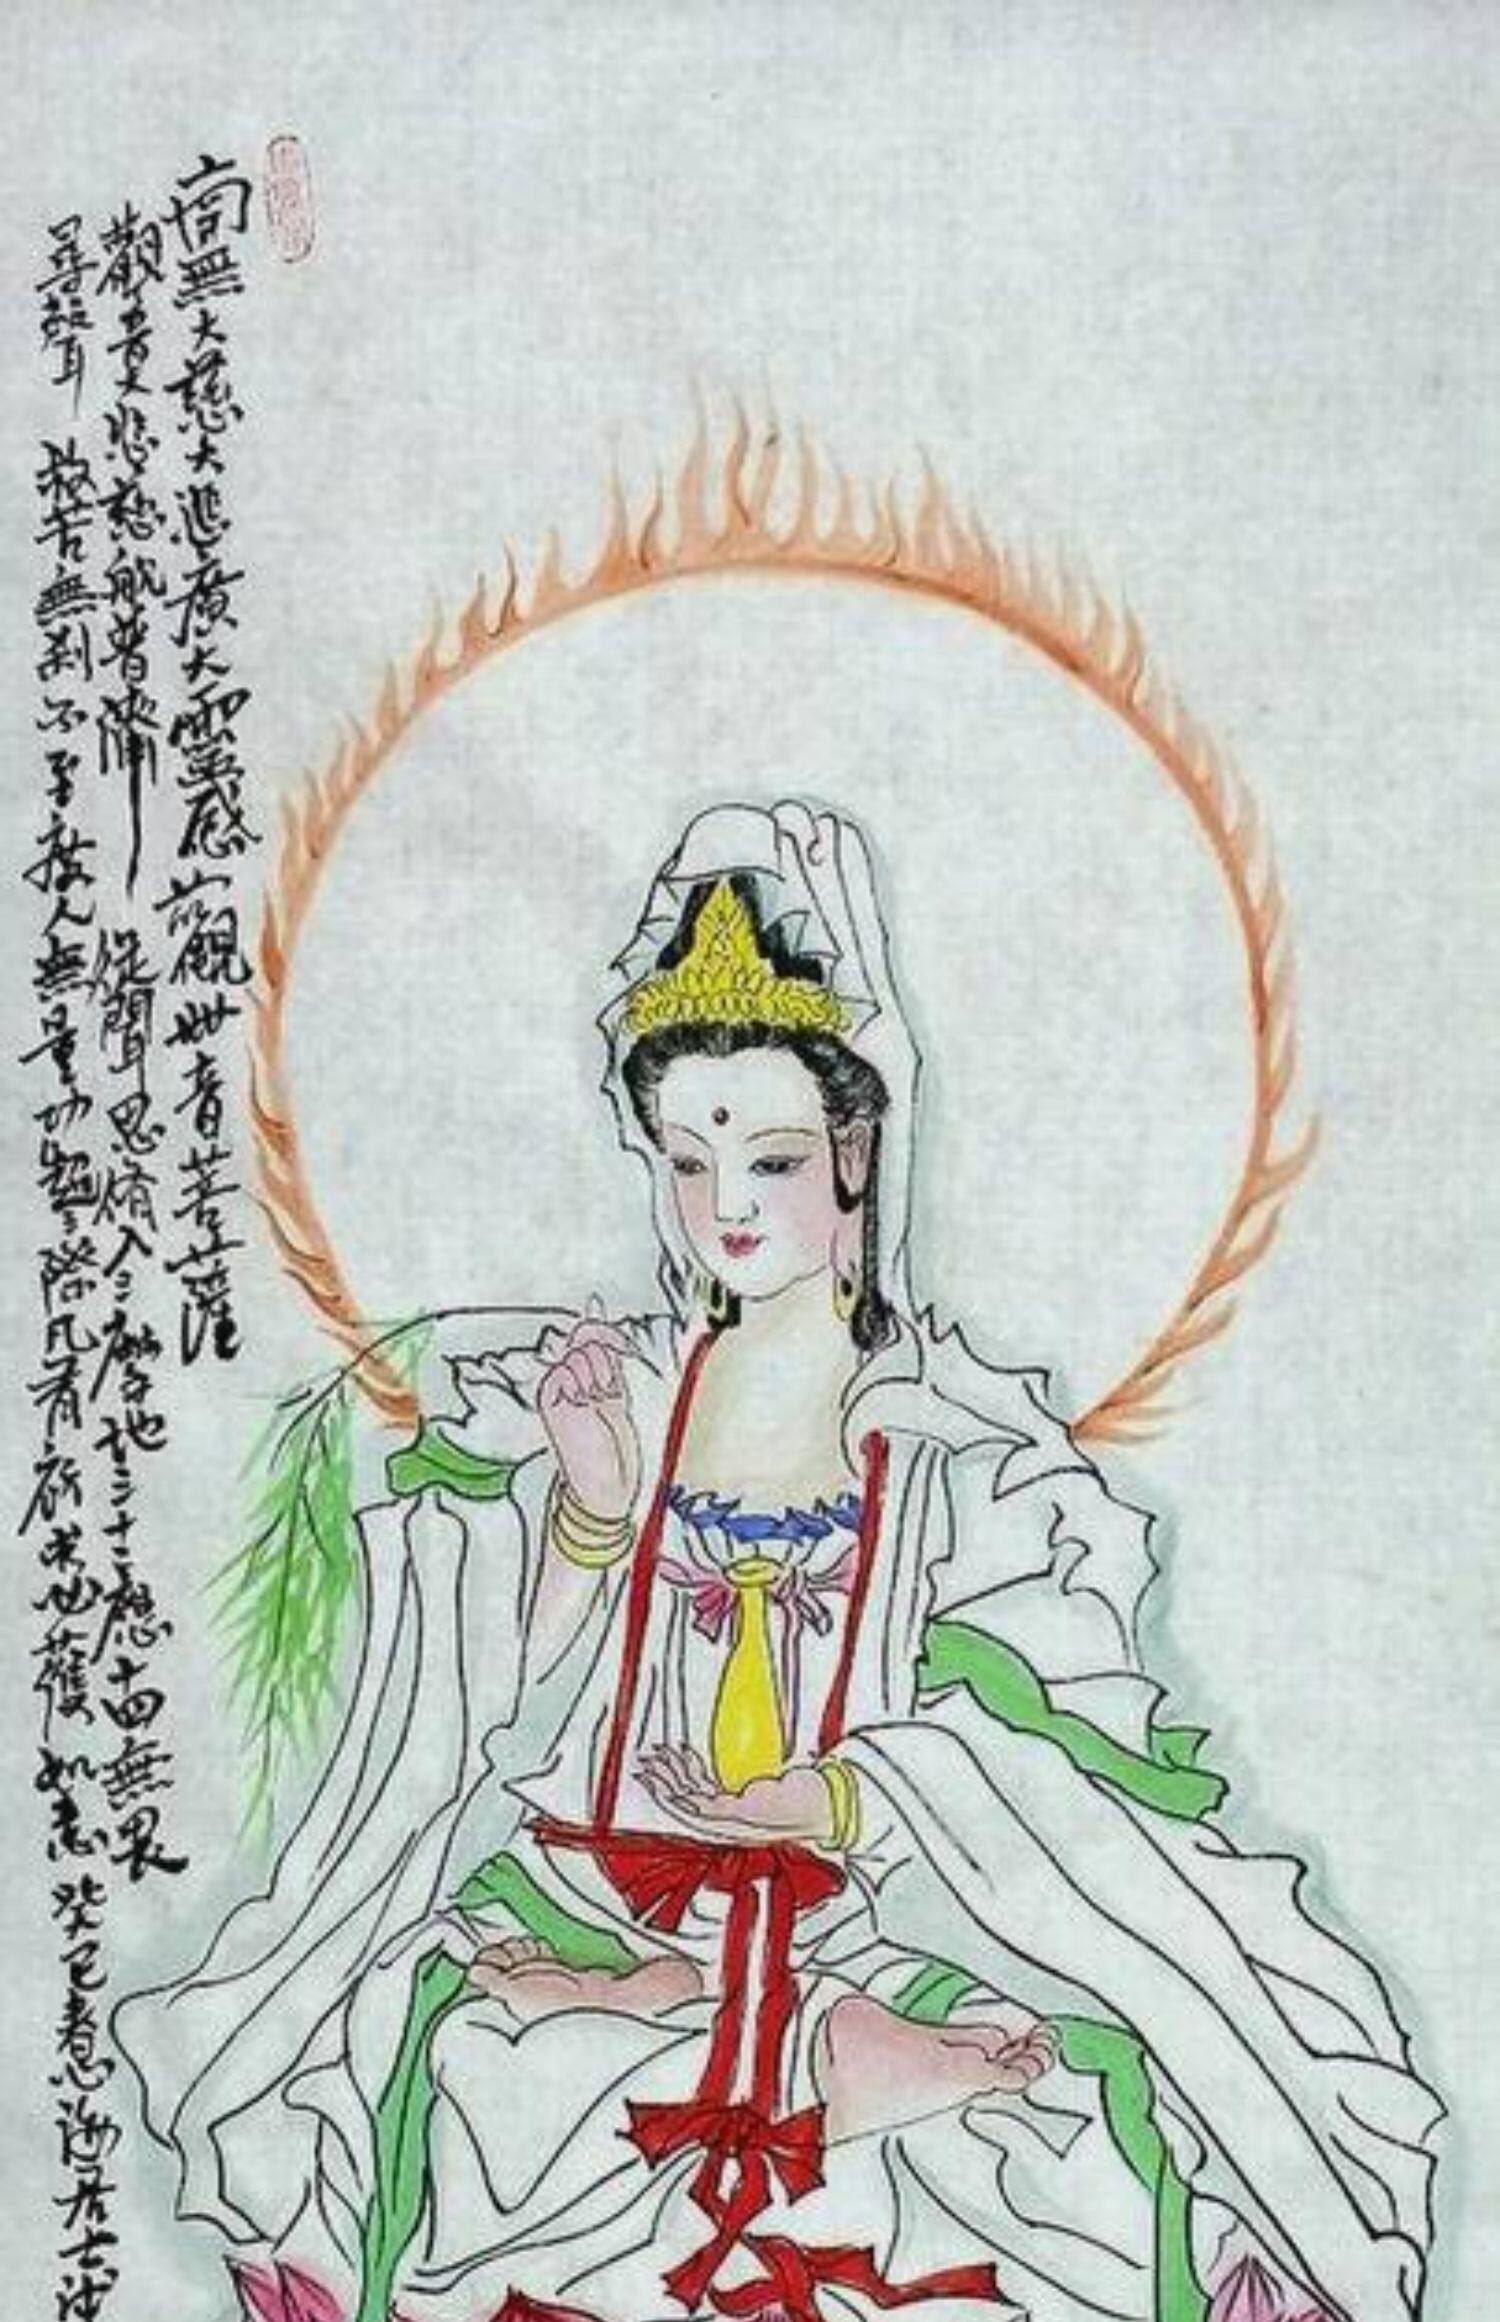 南無大慈大悲廣大靈感觀世音菩薩
觀音大悲慈航普濟從聞思脩入三摩地三十二應十四無畏
尋聲救苦無刹不至度人無量功超三際凡有所求必獲如意癸巳春惠海居士沐